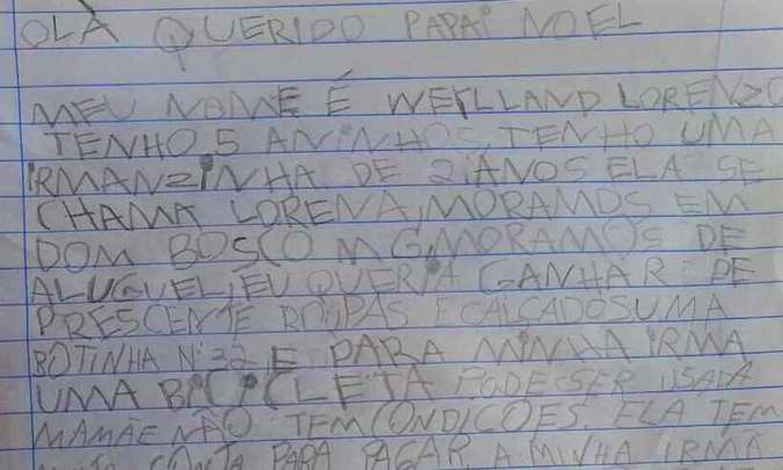 OLÀ QUERIDO PAPAI NOEL
MEU NOME É WELLLAND LORENZO
TENHO 5 ANINHOS, TENHO UMA
IRMANZINHA DE 2 ANOS ELA SE
CHAMA LORENA, MORAMOS EM
DOM BOSCO MG, MORAMOS DE
ALUGUEL, EU QUERIA GANHAR DE
PRESCENTE ROUPAS E CALÇADOS UMA
BOTINHA N: 32 E PARA MINHA IRMA
UMA BICICLETA PODE SER USADA
MAMÃE NÃO TEM CONDICOES. ELA TEM
CONTA PARA PAGAR. A MINHA IRMÃ